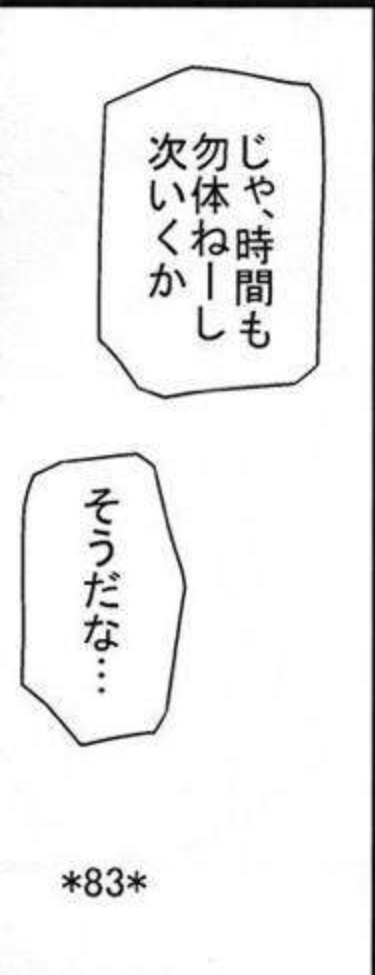 じゃ、時間も
勿体ねーし
次いくか
そうだな…
*83*